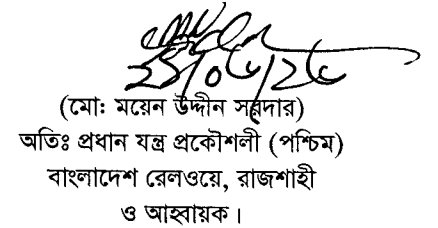 (মো: ময়েন উদ্দীন সরদার)
অতিঃ প্রধান যন্ত্র প্রকৌশলী (পশ্চিম)
বাংলাদেশ রেলওয়ে, রাজশাহী
ও আহ্বায়ক।